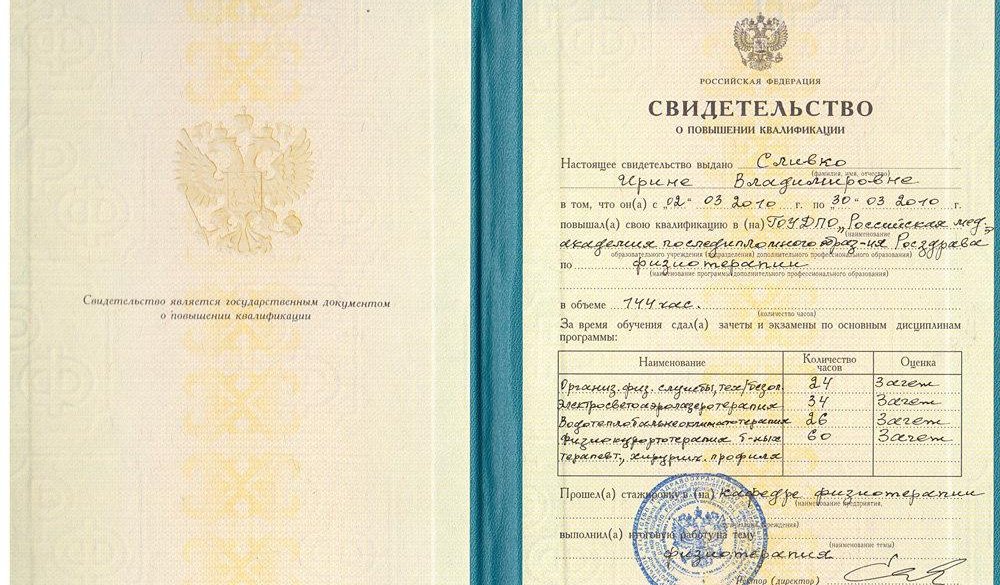 Свидетельство является государственным документом
о повышении квалификации
РОССИЙСКАЯ ФЕДЕРАЦИЯ
СВИДЕТЕЛЬСТВО
О ПОВЫШЕНИИ КВАЛИФИКАЦИИ
Настоящее свидетельство выдано Сливко
(фамилия, имя, отчество)
Ирине Владимировне
в том, что он(а) с „02“ 03 2010 г. по „30“ 03 2010 г.
повышал(а) свою квалификацию в (на) ГОУДПО „Российская мед.
(наименование
академия последипломного образ-ия Росздрава
образовательного учреждения (подразделения) дополнительного профессионального образования)
по физиотерапии
(наименование программы дополнительного профессионального образования)
в объеме 144 час.
(количество часов)
За время обучения сдал(а) зачеты и экзамены по основным дисциплинам
программы:
Наименование Количество часов Оценка
Организ. физ. службы, тех/безоп. 24 Зачет
Электросветоаэролазеротерапия 34 Зачет
Водотеплобальнеоклиматотерапия 26 Зачет
Физиокурортотерапия б-ных 60 Зачет
терапевт., хирургич. профиля
Прошел(а) стажировку в (на) кафедре физиотерапии
(наименование предприятия,
учреждения)
выполнил(а) итоговую работу на тему
(наименование темы)
физиотерапия
Ректор (директор)